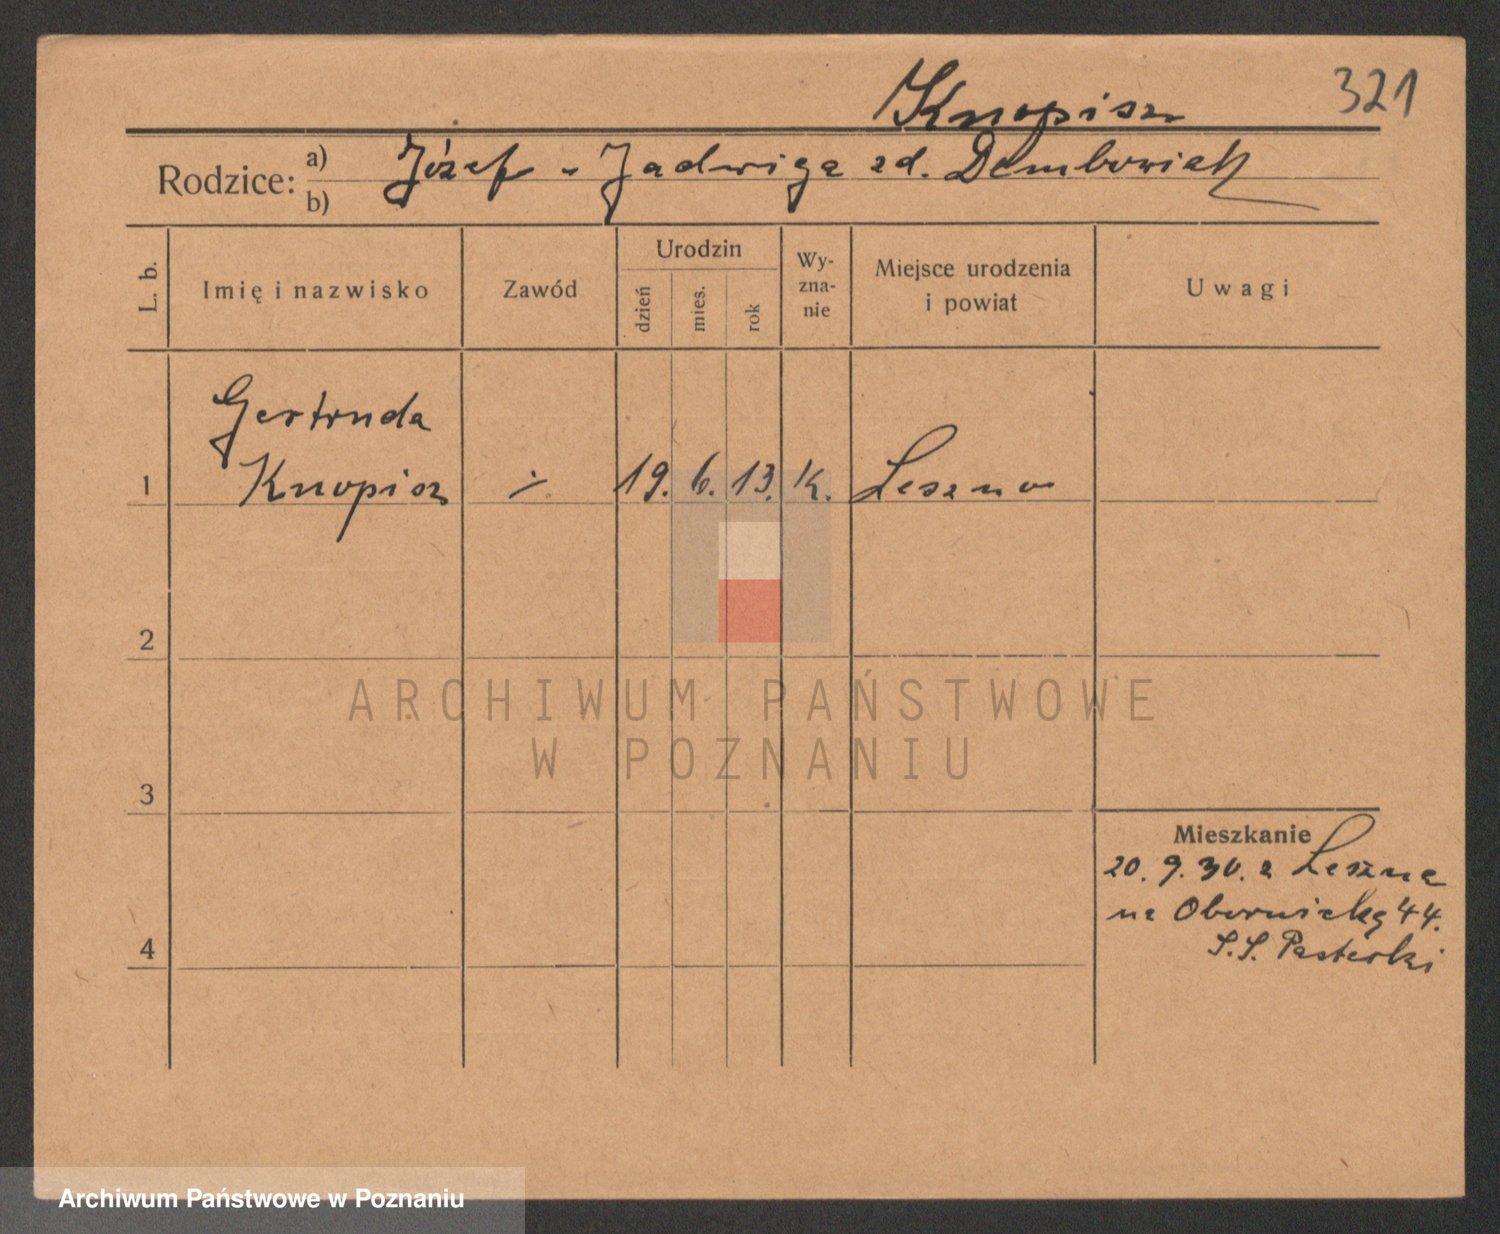 321
Knopisz
Rodzice: a) Józef - Jadwiga zd. Dembowiak
b)
L. b.
Imię i nazwisko
Zawód
Urodzin
dzień
mies.
rok
Wy-
zna-
nie
Miejsce urodzenia
i powiat
Uwagi
Gertruda
1 Knopisz 19. 6. 13. K. Leszno
2
3
4
Mieszkanie
20. 9. 30. z Leszna
na Obornicką 44.
S.S. Pasterki
ARCHIWUM PAŃSTWOWE
W POZNANIU
Archiwum Państwowe w Poznaniu